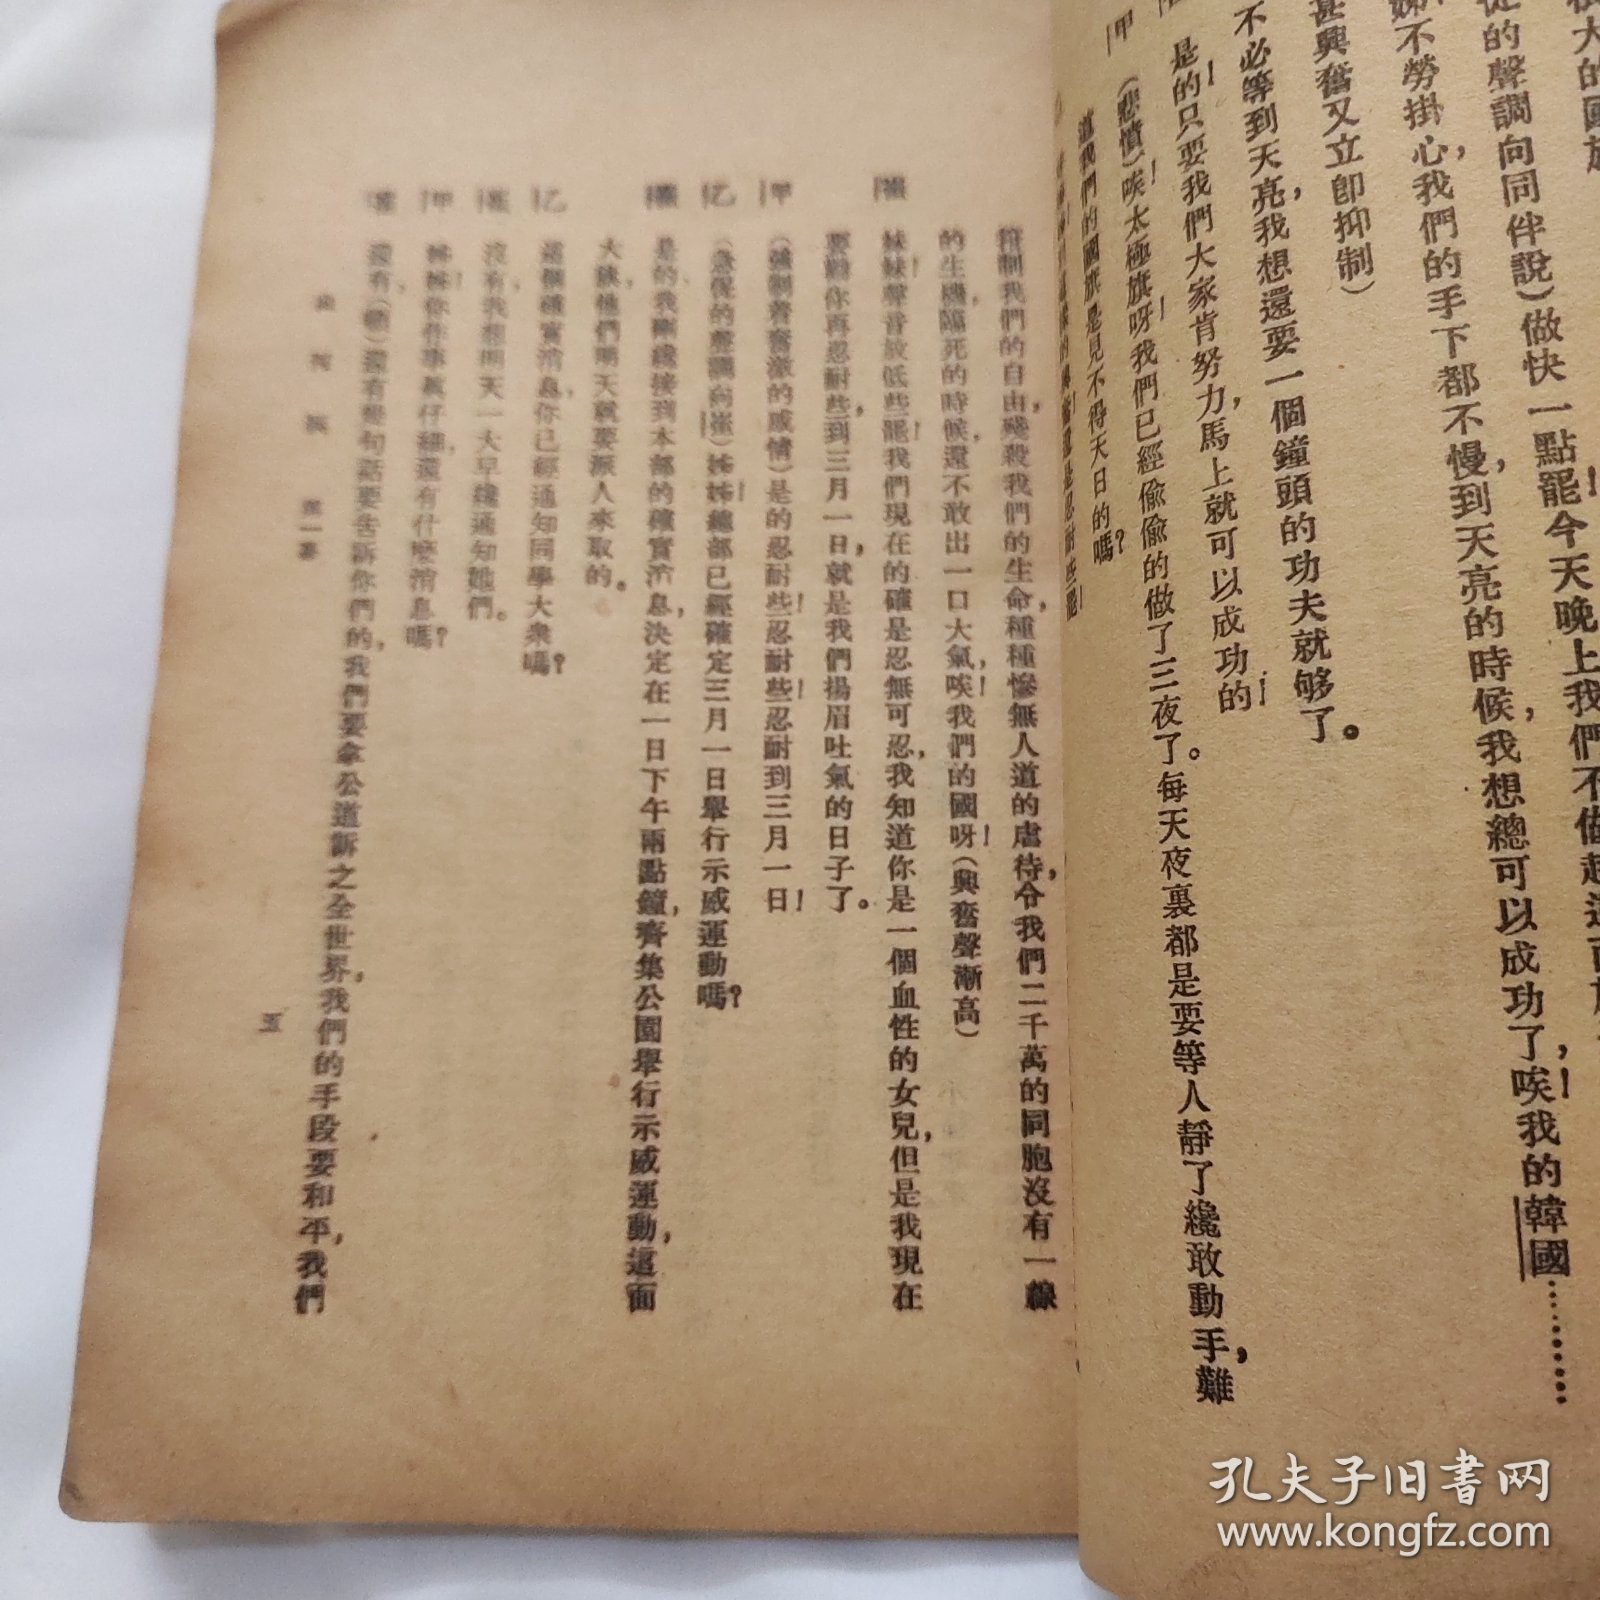 大的國旗
的聲調向同伴說)做快一點罷!今天晚上我們不做起這面旗,
不勞掛心,我們的手下都不慢,到天亮的時候,我想總可以成功了,唉!我的韓國…………
甚興奮又立卽抑制)
不必等到天亮,我想還要一個鐘頭的功夫就够了。
是的!只要我們大家肯努力,馬上就可以成功的!
甲 (悲憤)唉!太極旗呀!我們已經偸偸的做了三夜了。每天夜裏都是要等人靜了纔敢動手,難
道我們的國旗是見不得天日的嗎?
箝制我們的自由,殘殺我們的生命,種種慘無人道的虐待,令我們二千萬的同胞沒有一線
的生機,臨死的時候,還不敢出一口大氣,唉!我們的國呀!(興奮聲漸高)
妹妹!聲音放低些罷!我們現在的確是忍無可忍,我知道你是一個血性的女兒,但是我現在
要勸你再忍耐些,到三月一日,就是我們揚眉吐氣的日子了。
甲 (強制着奮激的感情)是的忍耐些!忍耐些!忍耐到三月一日!
乙 (急促的聲調向崔)姊姊!總部已經確定三月一日舉行示威運動嗎?
崔 是的我剛纔接到本部的確實消息,決定在一日下午兩點鐘,齊集公園舉行示威運動,這面
大旗他們明天就要派人來取的。
乙 這個確實消息,你已經通知同學大衆嗎?
崔 沒有,我想明天一大早纔通知她們。
甲 姊姊!你作事眞仔細,還有什麼消息嗎?
崔 還有,還有幾句話要告訴你們的,我們要拿公道訴之全世界,我們的手段要和平,我們
第一幕
五
孔夫子旧书网
www.kongfz.com